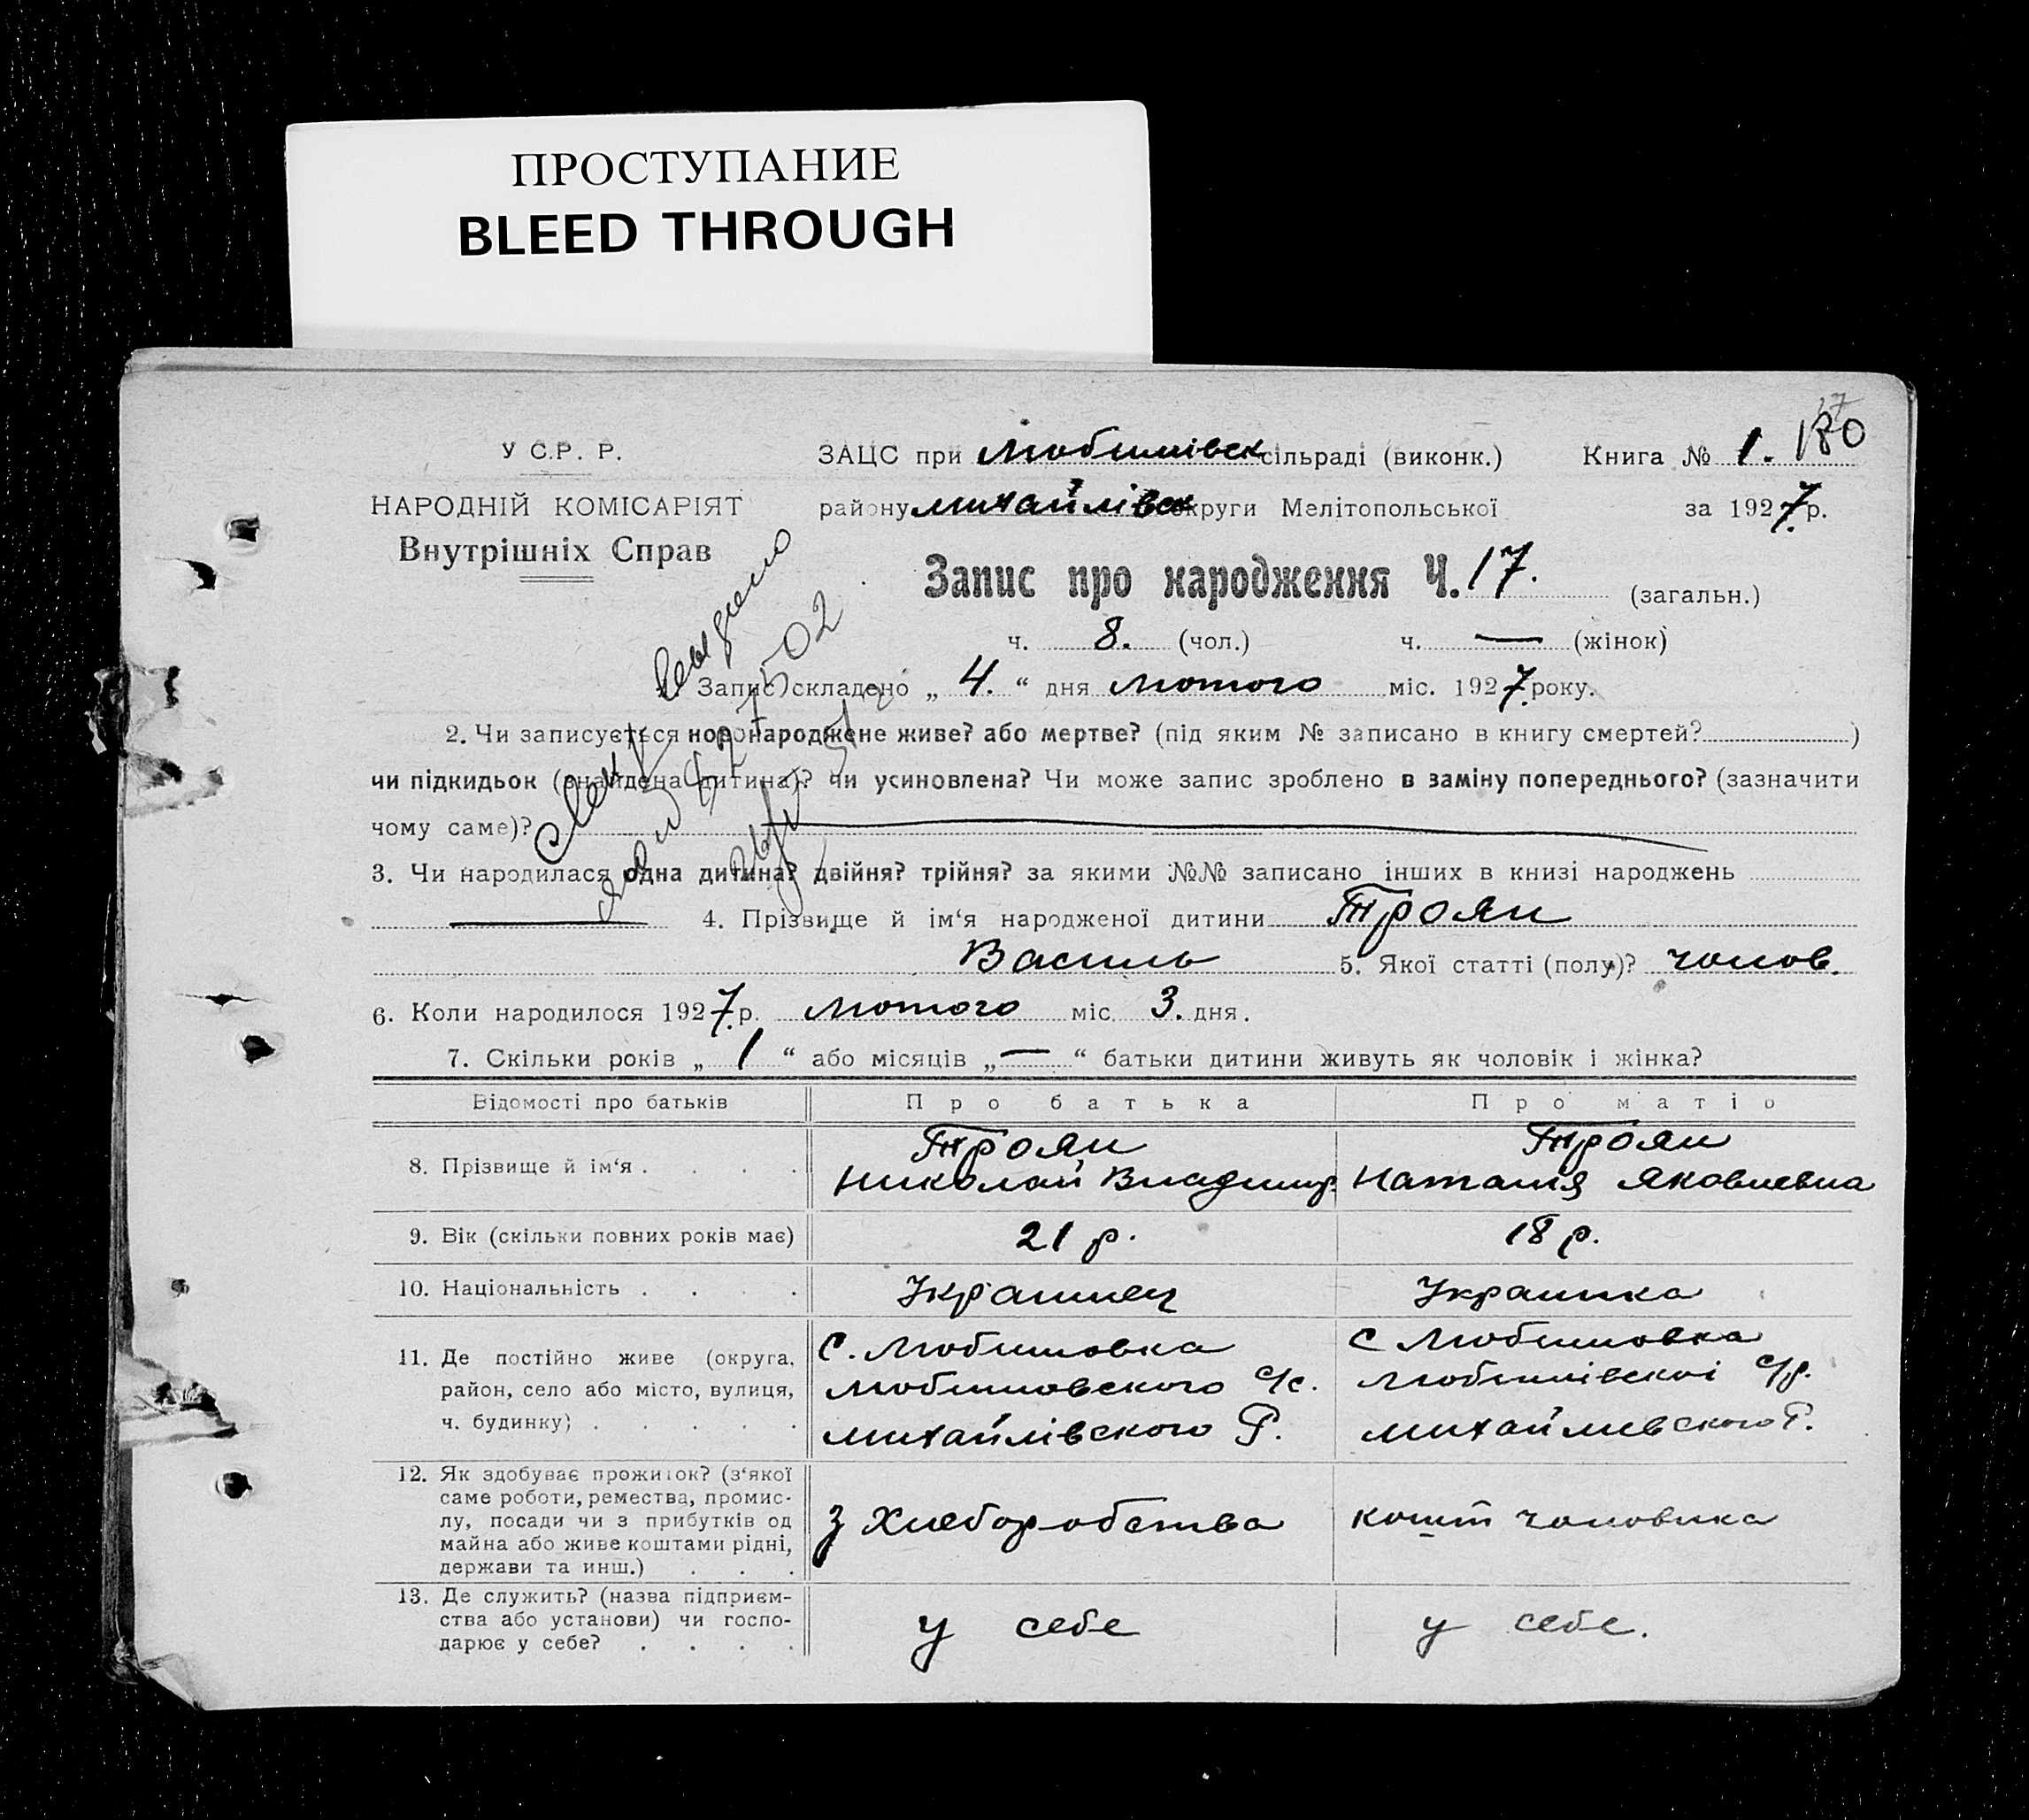 ПРОСТУПАНИЕ
BLEED THROUGH
17
180
У С.Р. Р.
НАРОДНІЙ КОМІСАРІЯТ
Внутрішніх Справ
ЗАЦС при Любимівск сільраді (виконк.) Книга № 1.
району михайлівск округи Мелітопольської за 1927 р.
Запис про народження Ч. 17. (загальн.)
ч. 8. (чол.) ч. — (жінок)
1. Запис складено „ 4. “ дня лютого міс. 1927 року.
2. Чи записується новонароджене живе? або мертве? (під яким № записано в книгу смертей? )
чи підкидьок (знайдена дитина)? чи усиновлена? Чи може запис зроблено в заміну попереднього? (зазначити
чому саме)?
3. Чи народилася одна дитина? двійня? трійня? за якими №№ записано інших в книзі народжень
4. Прізвище й ім‘я народженої дитини Троян
Василь 5. Якої статті (полу)? чолов.
6. Коли народилося 1927 р. лютого міс. 3. дня.
7. Скільки років „ 1 “ або місяців „ — “ батьки дитини живуть як чоловік і жінка?
Відомості про батьків Про батька Про матір
8. Прізвище й ім‘я . . . . Троян Троян
Николай Владимир. Наталия Яковлевна
9. Вік (скільки повних років має) 21 р. 18 р.
10. Національність . . . . Украинец Украинка
11. Де постійно живе (округа, С. Любимовка С Любимовка
район, село або місто, вулиця, Любимовского с/с. Любимівскоі с/р.
ч. будинку) . . . . . михайлівского Р. михайливского Р.
12. Як здобуває прожиток? (з‘якої
саме роботи, ремества, промис-
лу, посади чи з прибутків од з Хлеборобства кошт чоловика
майна або живе коштами рідні,
держави та инш.) . . .
13. Де служить? (назва підприєм-
ства або установи) чи госпо- у себе у себе.
дарює у себе? . . . .